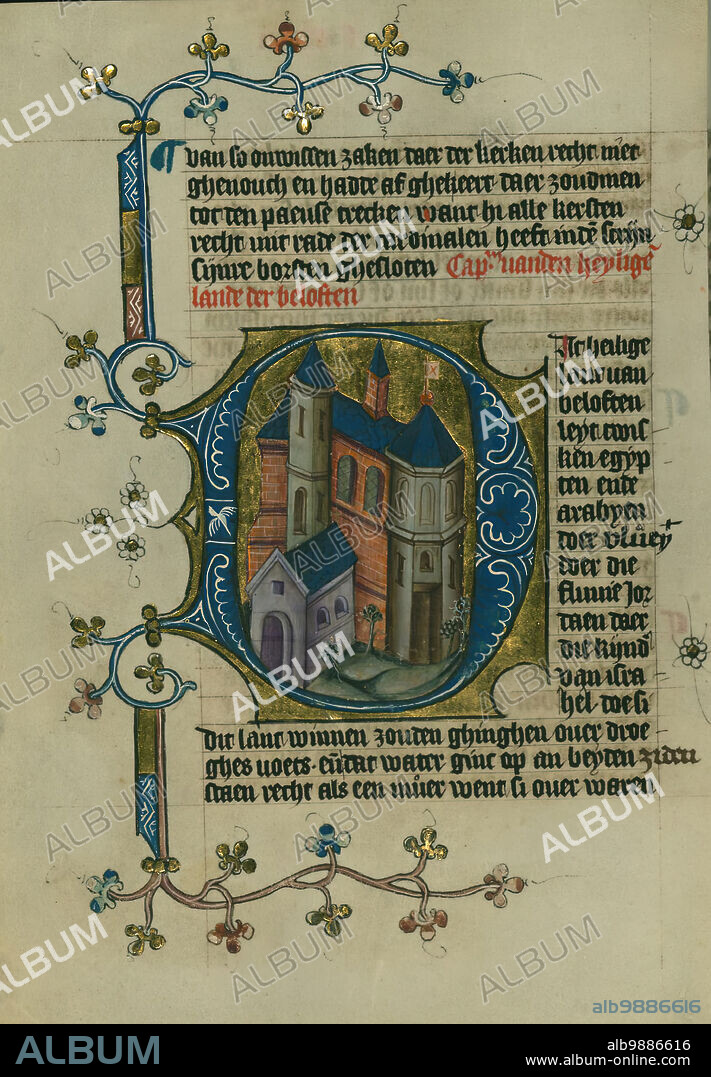 van so onwissen zaken daer der kerken recht niet
ghenouch en hadte af ghekeert daer zoudmen
tot ten paeuse trecken want hi alle kersten
recht uut rade der cardinalen heeft indē scrijn
sijnre borsten ghesloten Capᵐ vanden heylighē
lande der beloften
Dit heilige
lande van
beloften
leyt twis
ken egyp
ten ende
arabyen
doer
doer die
fluuie Jor
daen daer
die kindˢ
van isra
hel doe si
dit lant winnen zouden ghinghen ouer droe
ghes uoets. eñ dat water ginc op an beyden ziden
staen recht als een muer went si ouer waren
ALBUM
alb9886616
ALBUM
alb9886616
www.album-online.com